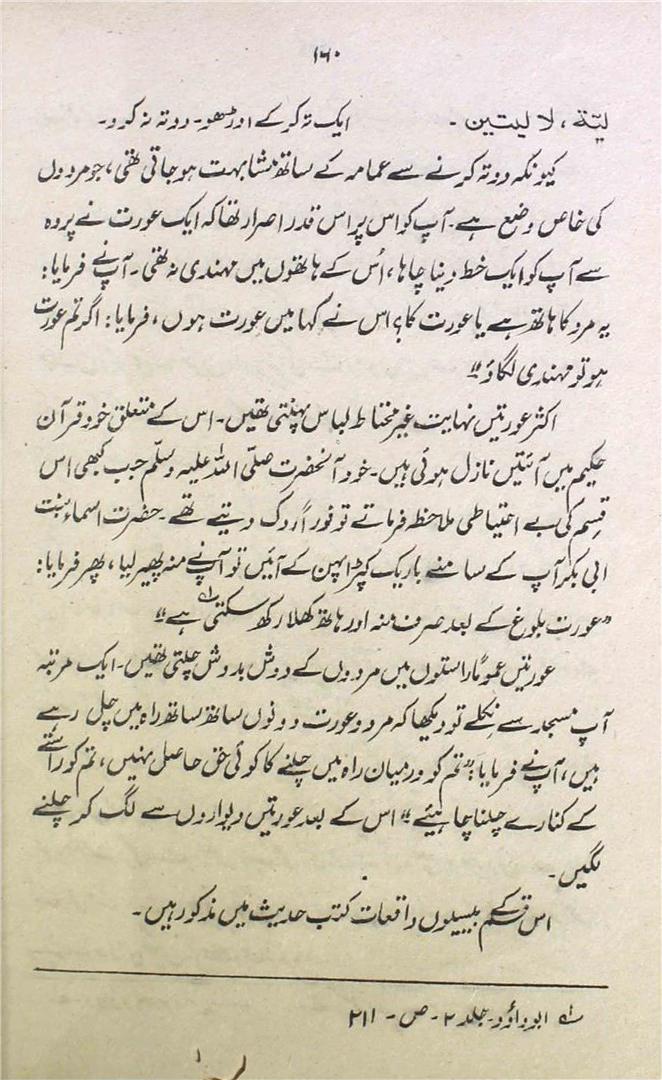 ۱۶۰
لیّة، لا لیتین۔ ایک تہ کر کے اوڑھو۔ دو تہ نہ کرو۔
کیونکہ دو تہ کرنے سے عمامہ کے ساتھ مشابہت ہو جاتی تھی، جو مردوں
کی خاص وضع ہے۔ آپ کو اس پر اس قدر اصرار تھا کہ ایک عورت نے پردہ
سے آپ کو ایک خط دینا چاہا، اُس کے ہاتھوں میں مہندی نہ تھی۔ آپ نے فرمایا:
یہ مرد کا ہاتھ ہے یا عورت کا؟ اس نے کہا میں عورت ہوں، فرمایا: اگر تم عورت
ہو تو مہندی لگاؤ"
اکثر عورتیں نہایت غیر محتاط لباس پہنتی تھیں۔ اس کے متعلق خود قرآن
حکیم میں آئتیں نازل ہوئی ہیں۔ خود آنحضرت صلّی اللہ علیہ وسلّم جب کبھی اس
قسم کی بے احتیاطی ملاحظہ فرماتے تو فوراً روک دیتے تھے۔ حضرت اسماء بنت
ابی بکر آپ کے سامنے باریک کپڑا پہن کے آئیں تو آپ نے منہ پھیر لیا، پھر فرمایا:
"عورت بلوغ کے بعد صرف منہ اور ہاتھ کھلا رکھ سکتی ہے"؂۱
عورتیں عموماً راستوں میں مردوں کے دوش بدوش چلتی تھیں۔ ایک مرتبہ
آپ مسجد سے نکلے تو دیکھا کہ مرد و عورت دونوں ساتھ ساتھ راہ میں چل رہے
ہیں، آپ نے فرمایا: "تم کو درمیان راہ میں چلنے کا کوئی حق حاصل نہیں، تم کو راستے
کے کنارے چلنا چاہئیے" اس کے بعد عورتیں دیواروں سے لگ کر چلنے
لگیں۔
اس قسم کے بیسیوں واقعات کتب حدیث میں مذکور ہیں۔
؂۱ ابو داؤد۔ جلد ۲۔ ص۔ ۲۱۱